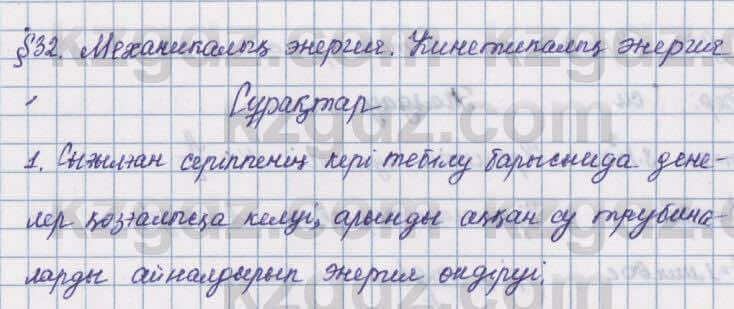 §32. Механикалық энергия. Кинетикалық энергия
Сұрақтар
1. Сығылған серіппенің кері тебілу барысында дене-
лер қозғалысқа келуі, арынды аққан су трубина-
ларды айналдырып энергия өндіруі.
kzgdz.com